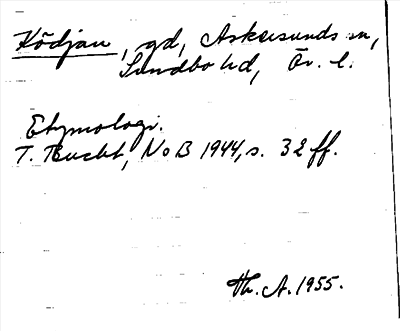 Ködjan, gd, Askersunds sn,
Sundbo hd, Ör. l.
Etymologi.
T. Bucht, NoB 1944, s. 32 ff.
Th. A. 1955.